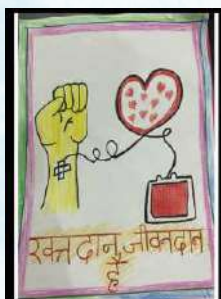 रक्तदान जीवनदान
है